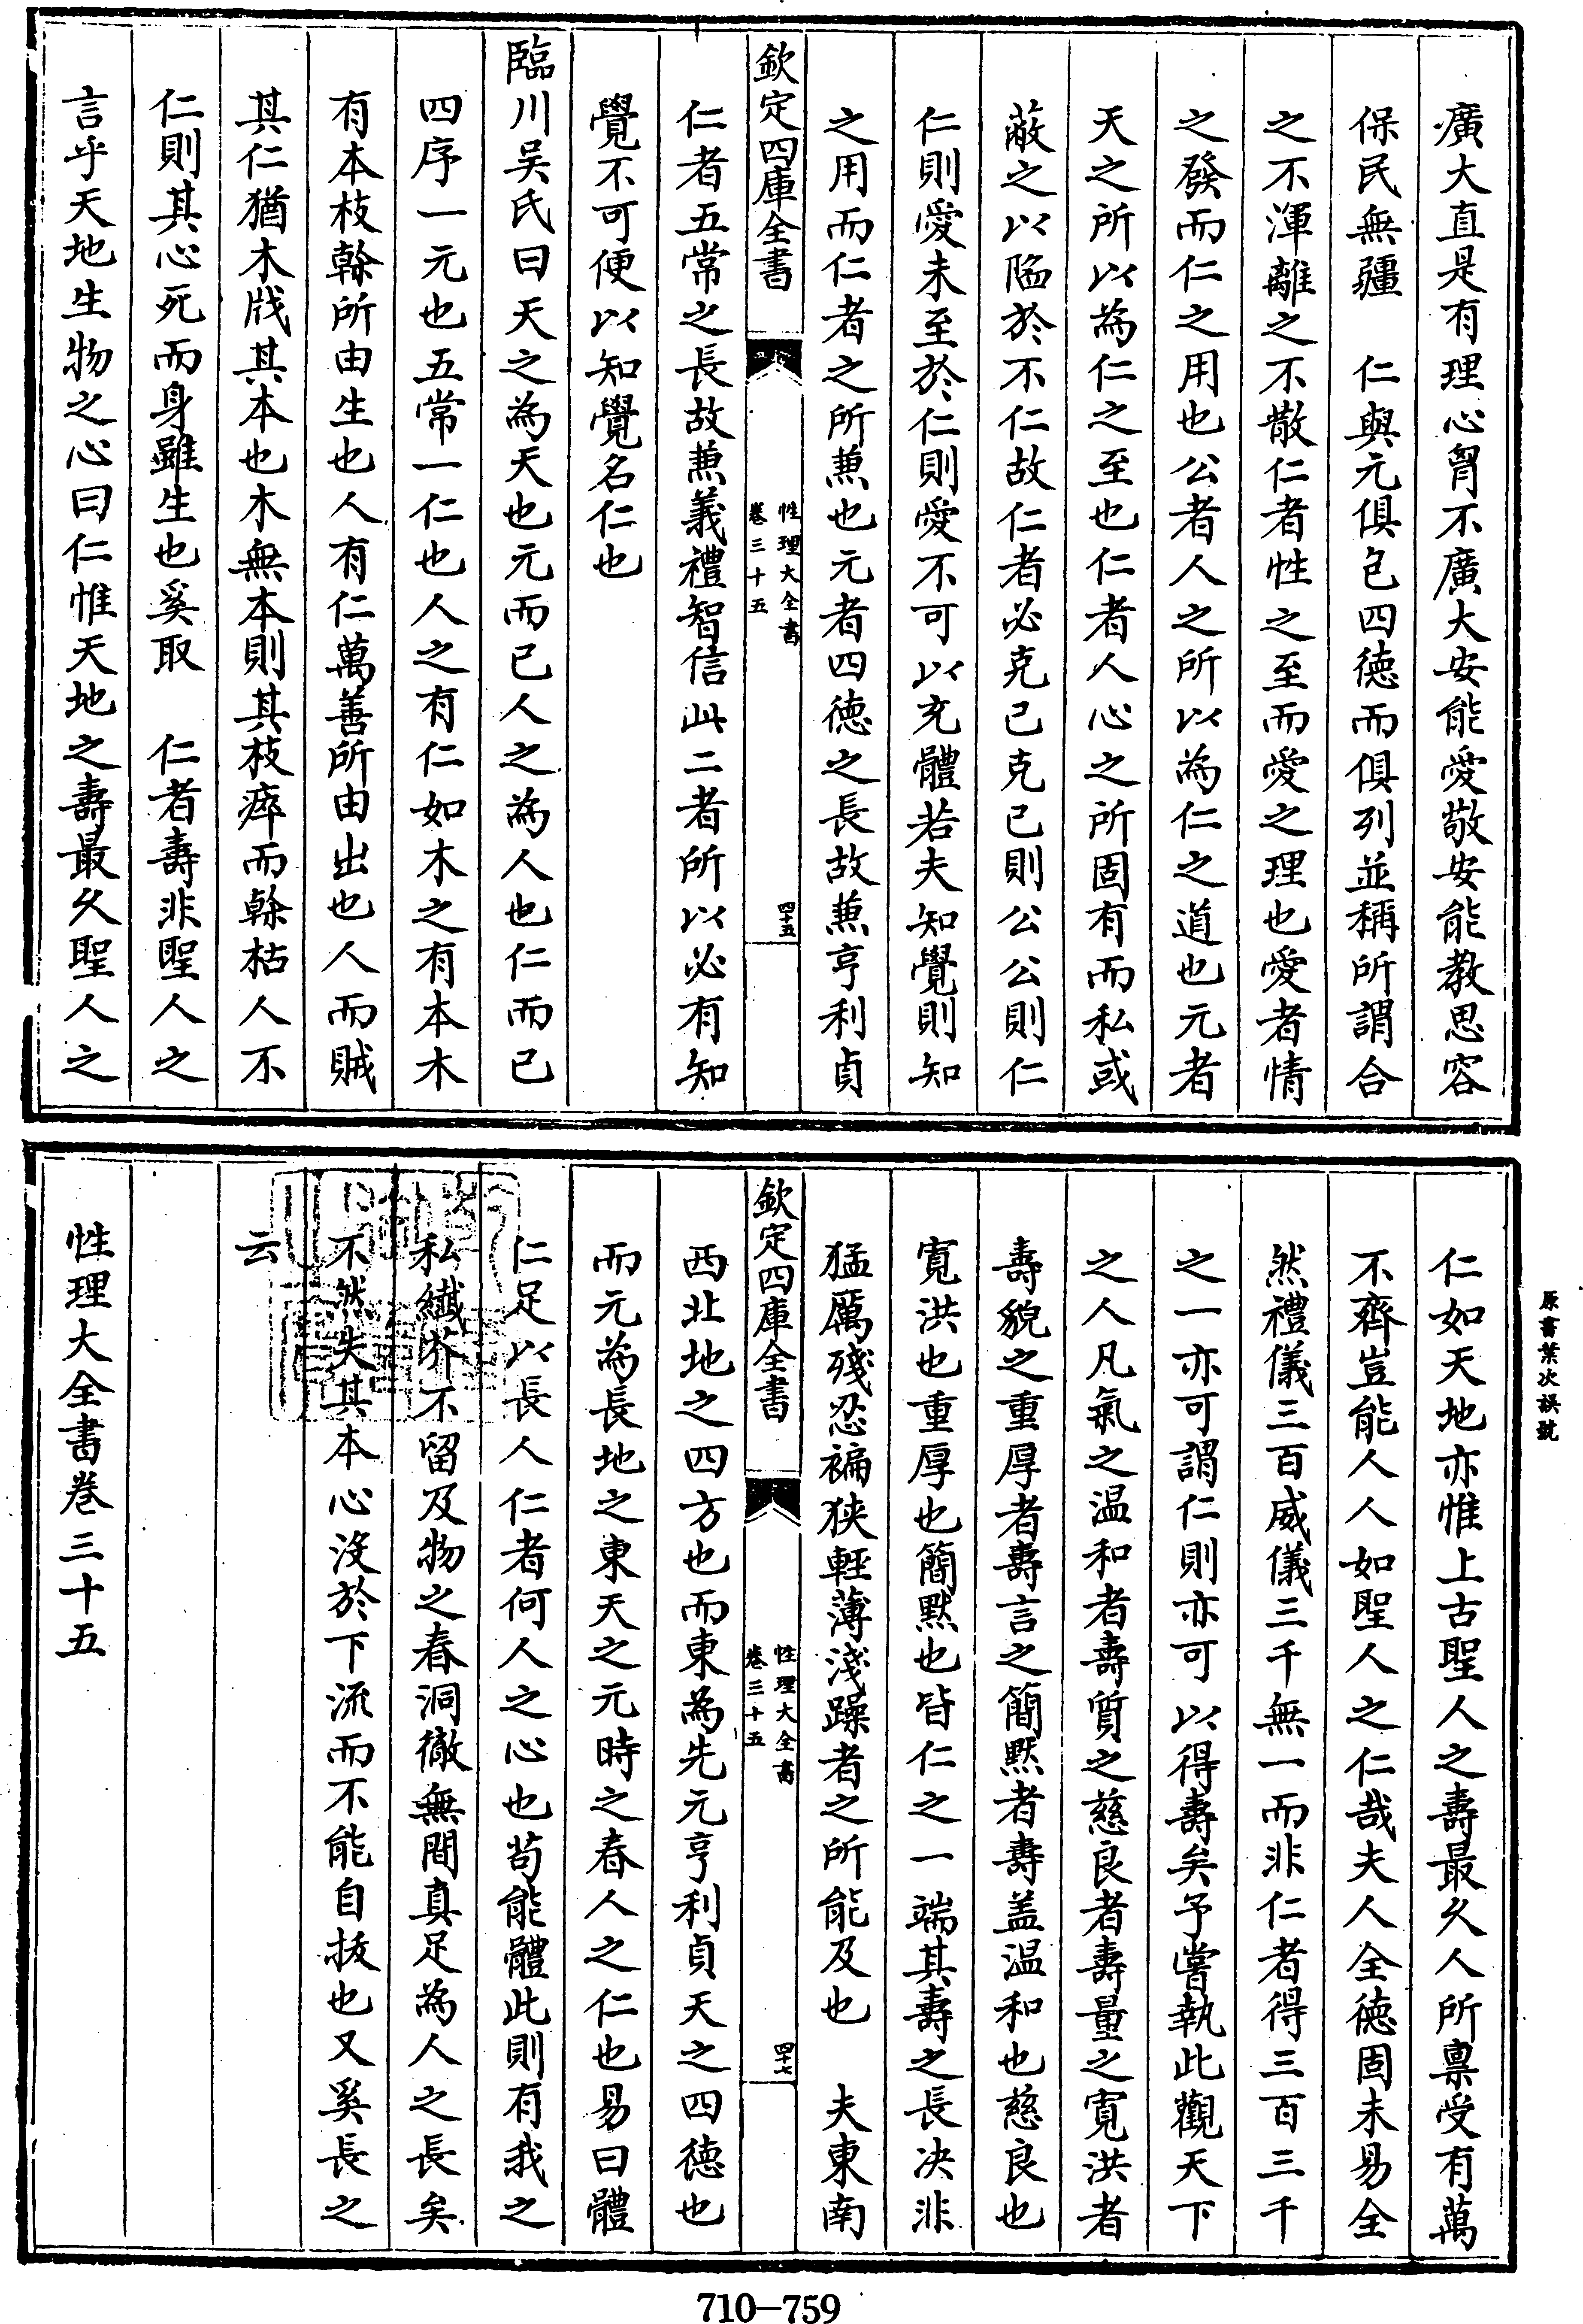 廣大直是有理心胷不廣大安能愛敬安能教思容
保民無疆　仁與元俱包四徳而俱列並稱所謂合
之不渾離之不散仁者性之至而愛之理也愛者情
之發而仁之用也公者人之所以為仁之道也元者
天之所以為仁之至也仁者人心之所固有而私或
蔽之以陷於不仁故仁者必克己克己則公公則仁
仁則愛未至於仁則愛不可以充體若夫知覺則知
之用而仁者之所兼也元者四徳之長故兼亨利貞
欽定四庫全書
性理大全書
卷三十五
四十五
仁者五常之長故兼義禮智信此二者所以必有知
覺不可便以知覺名仁也
臨川吴氏曰天之為天也元而已人之為人也仁而已
四序一元也五常一仁也人之有仁如木之有本木
有本枝榦所由生也人有仁萬善所由出也人而賊
其仁猶木戕其本也木無本則其枝瘁而榦枯人不
仁則其心死而身雖生也奚取　仁者夀非聖人之
言乎天地生物之心曰仁惟天地之夀最久聖人之
原書葉次誤號
仁如天地亦惟上古聖人之夀最久人所禀受有萬
不齊豈能人人如聖人之仁哉夫人全徳固未易全
然禮儀三百威儀三千無一而非仁者得三百三千
之一亦可謂仁則亦可以得夀矣予嘗執此觀天下
之人凡氣之温和者夀質之慈良者夀量之寛洪者
夀貌之重厚者夀言之簡黙者夀盖温和也慈良也
寛洪也重厚也簡黙也皆仁之一端其夀之長决非
猛厲殘忍褊狹輕薄淺躁者之所能及也　夫東南
欽定四庫全書
性理大全書
卷三十五
四十七
西北地之四方也而東為先元亨利貞天之四徳也
而元為長地之東天之元時之春人之仁也易曰體
仁足以長人仁者何人之心也茍能體此則有我之
私纎芥不留及物之春洞徹無間真足為人之長矣
不然失其本心沒於下流而不能自拔也又奚長之
云
性理大全書卷三十五
710—759